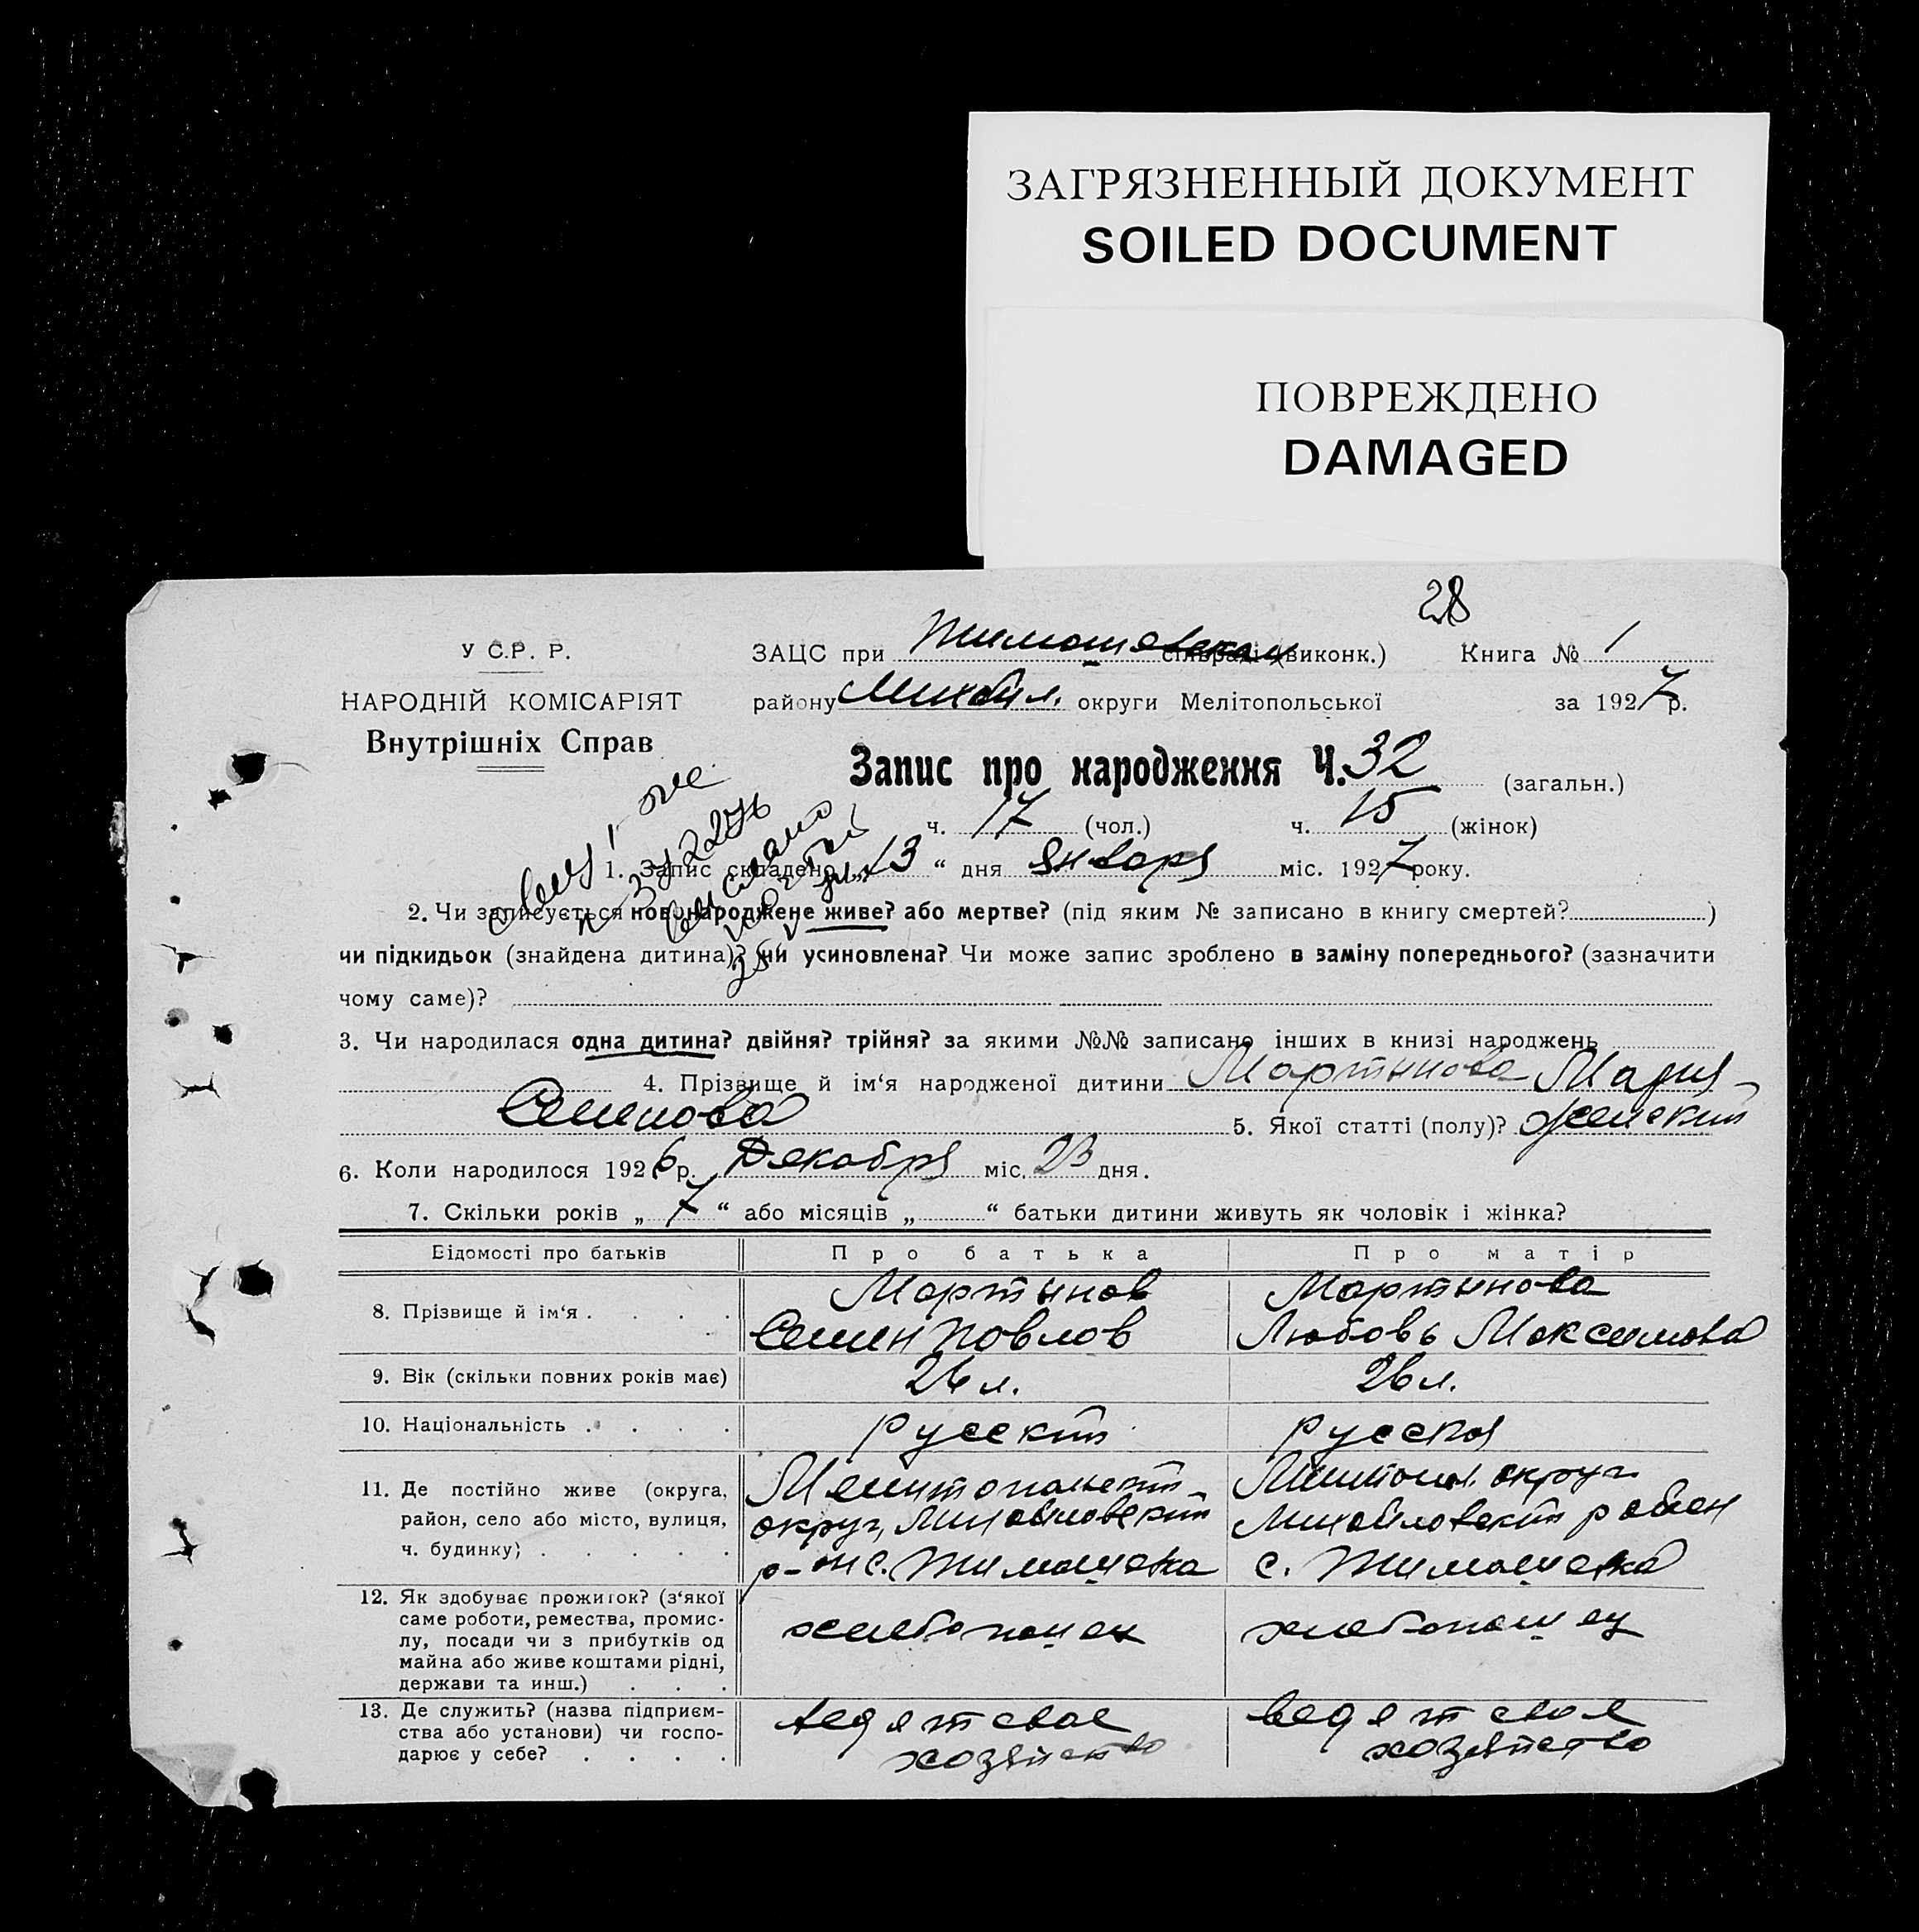 ЗАГРЯЗНЕННЫЙ ДОКУМЕНТ
SOILED DOCUMENT
ПОВРЕЖДЕНО
DAMAGED
28
У С.Р. Р.
НАРОДНІЙ КОМІСАРІЯТ
Внутрішніх Справ
ЗАЦС при Тимошевском сільраді (виконк.) Книга № 1
району Михайл. округи Мелітопольської за 1927 р.
Запис про народження Ч. 32 (загальн.)
ч. 17 (чол.) ч. 15 (жінок)
1. Запис складено „13“ дня Января міс. 1927 року.
2. Чи записується новонароджене живе? або мертве? (під яким № записано в книгу смертей? )
чи підкидьок (знайдена дитина)? чи усиновлена? Чи може запис зроблено в заміну попереднього? (зазначити
чому саме)?
3. Чи народилася одна дитина? двійня? трійня? за якими №№ записано інших в книзі народжень
4. Прізвище й ім‘я народженої дитини Мартынова Мария
Семенова 5. Якої статті (полу)? женский
6. Коли народилося 1926 р. Декабря міс. 23 дня.
7. Скільки років „ 7 “ або місяців „ “ батьки дитини живуть як чоловік і жінка?
Відомості про батьків Про батька Про матір
8. Прізвище й ім‘я . . . . Мартынов Мартынова
Семен Павлов Любовь Максимова
9. Вік (скільки повних років має) 26 л. 26 л.
10. Національність . . . . русский русская
11. Де постійно живе (округа, Мелитопольский Мелитопол. округ
район, село або місто, вулиця, округ, Михайловский Михайловский район
ч. будинку) . . . . . р-он с. Тимошевка с. Тимошевка
12. Як здобуває прожиток? (з‘якої
саме роботи, ремества, промис-
лу, посади чи з прибутків од хлебопашец хлебопашец
майна або живе коштами рідні,
держави та инш.) . . .
13. Де служить? (назва підприєм- ведет свое ведет свое
ства або установи) чи госпо- хозяйство хозяйство
дарює у себе? . . . .